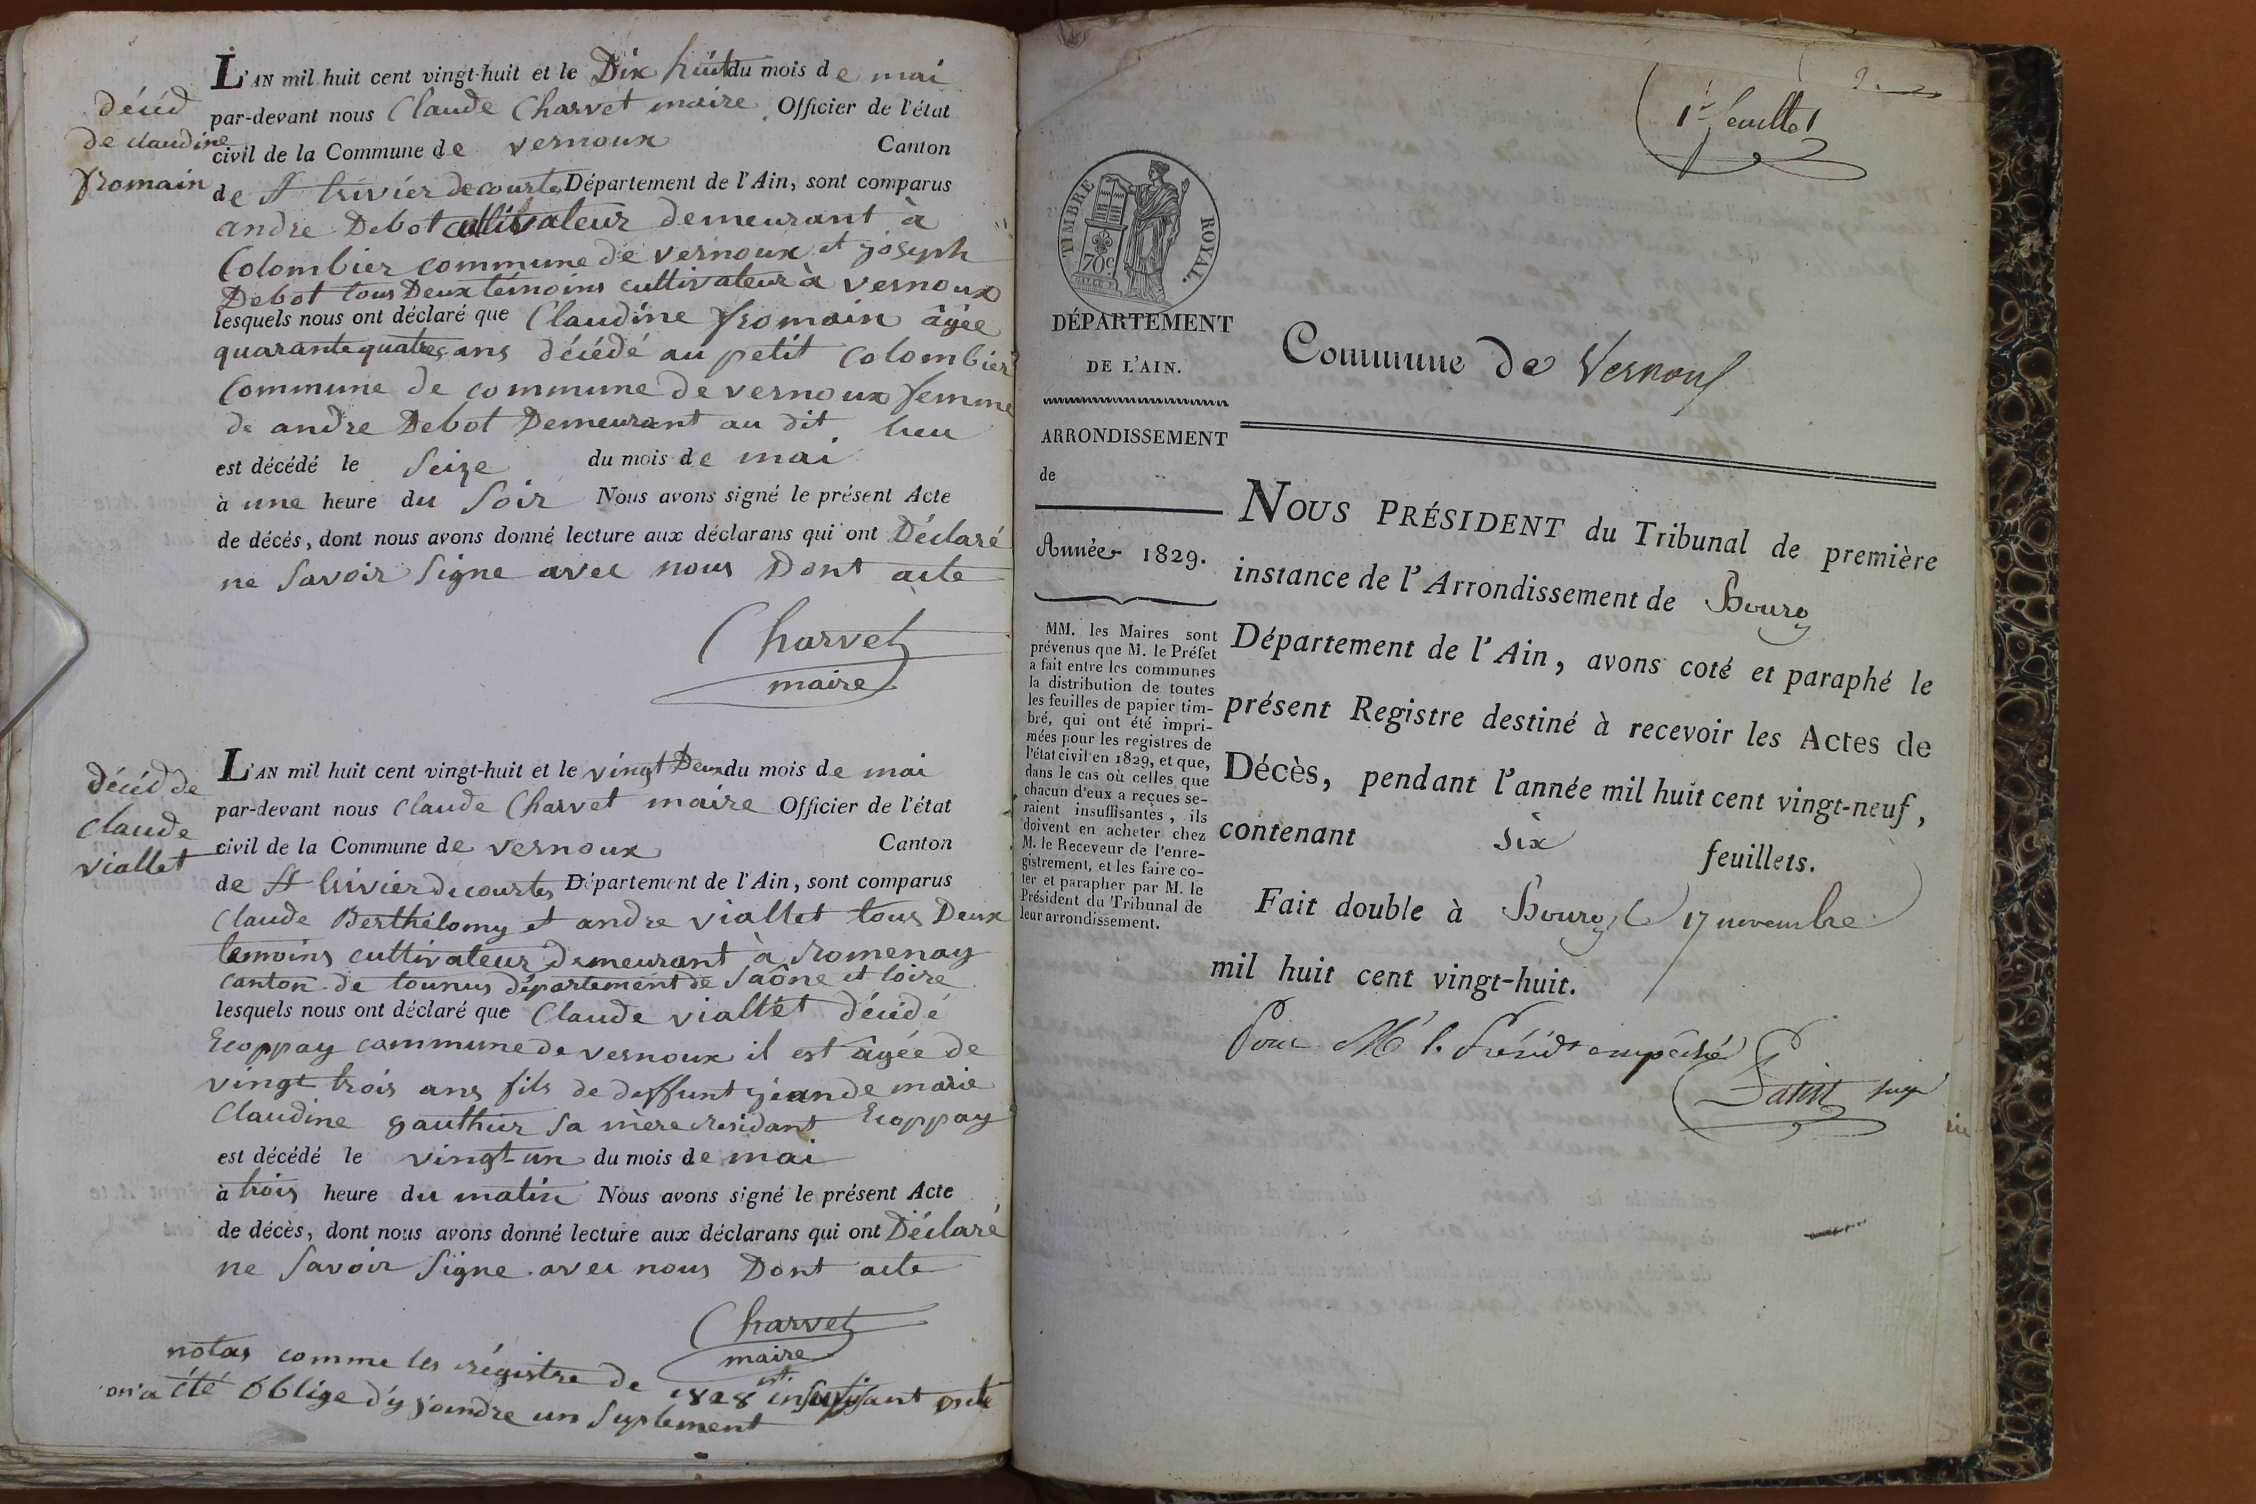 L'AN mil huit cent vingt-huit et le Dix huit du mois de mai
décéd
de claudine
fromain
par-devant nous Claude Charvet maire Officier de l'état
civil de la Commune de vernoux Canton
de St trivier de courtes Département de l'Ain, sont comparus
andre Debot cultivateur demeurant à
Colombier commune de vernoux et joseph
Debot tous Deux témoins cultivateur à vernoux
lesquels nous ont déclaré que Claudine fromain âgée
quarante quatres ans décédé au petit colombier
Commune de commune de vernoux femme
de andre Debot Demeurant au dit lieu
est décédé le Seize du mois de mai
à une heure du Soir Nous avons signé le présent Acte
de décès, dont nous avons donné lecture aux déclarans qui ont Déclaré
ne Savoir Signe avec nous Dont acte
Charvet
maire
L'AN mil huit cent vingt-huit et le vingt Deux du mois de mai
décéd de
claude
viallet
par-devant nous Claude Charvet maire Officier de l'état
civil de la Commune de vernoux Canton
de St trivier de courtes Département de l'Ain, sont comparus
Claude Berthélomy et andre viallet tous Deux
temoins cultivateur Demeurant à romenay
canton de tounus département de Saône et loire
lesquels nous ont déclaré que Claude viallet décédé
Ecoppay commune de vernoux il est âgée de
vingt trois ans fils de deffunt jean de marie
Claudine gauthier Sa mère residant Ecoppay
est décédé le vingt-un du mois de mai
à trois heure du matin Nous avons signé le présent Acte
de décès, dont nous avons donné lecture aux déclarans qui ont Déclaré
ne Savoir Signe avec nous Dont acte
Charvet
maire
notas comme les régistre de 1828 insufisant
on'a été oblige d'y joindre un Suplement
1er feuillet
TIMBRE ROYAL.
70c
DÉPARTEMENT
DE L'AIN.
ARRONDISSEMENT
de
Année 1829.
MM. les Maires sont
prévenus que M. le Préfet
a fait entre les communes
la distribution de toutes
les feuilles de papier tim-
bré, qui ont été impri-
mées pour les registres de
l'état civil en 1829, et que,
dans le cas où celles que
chacun d'eux a reçues se-
raient insuffisantes, ils
doivent en acheter chez
M. le Receveur de l'enre-
gistrement, et les faire co-
ter et parapher par M. le
Président du Tribunal de
leur arrondissement.
Commune de Vernoux
NOUS PRÉSIDENT du Tribunal de première
instance de l'Arrondissement de Bourg
Département de l'Ain, avons coté et paraphé le
présent Registre destiné à recevoir les Actes de
Décès, pendant l'année mil huit cent vingt-neuf,
contenant six feuillets.
Fait double à Bourg, le 17 novembre
mil huit cent vingt-huit.
Pour Mr le Présidt empêché